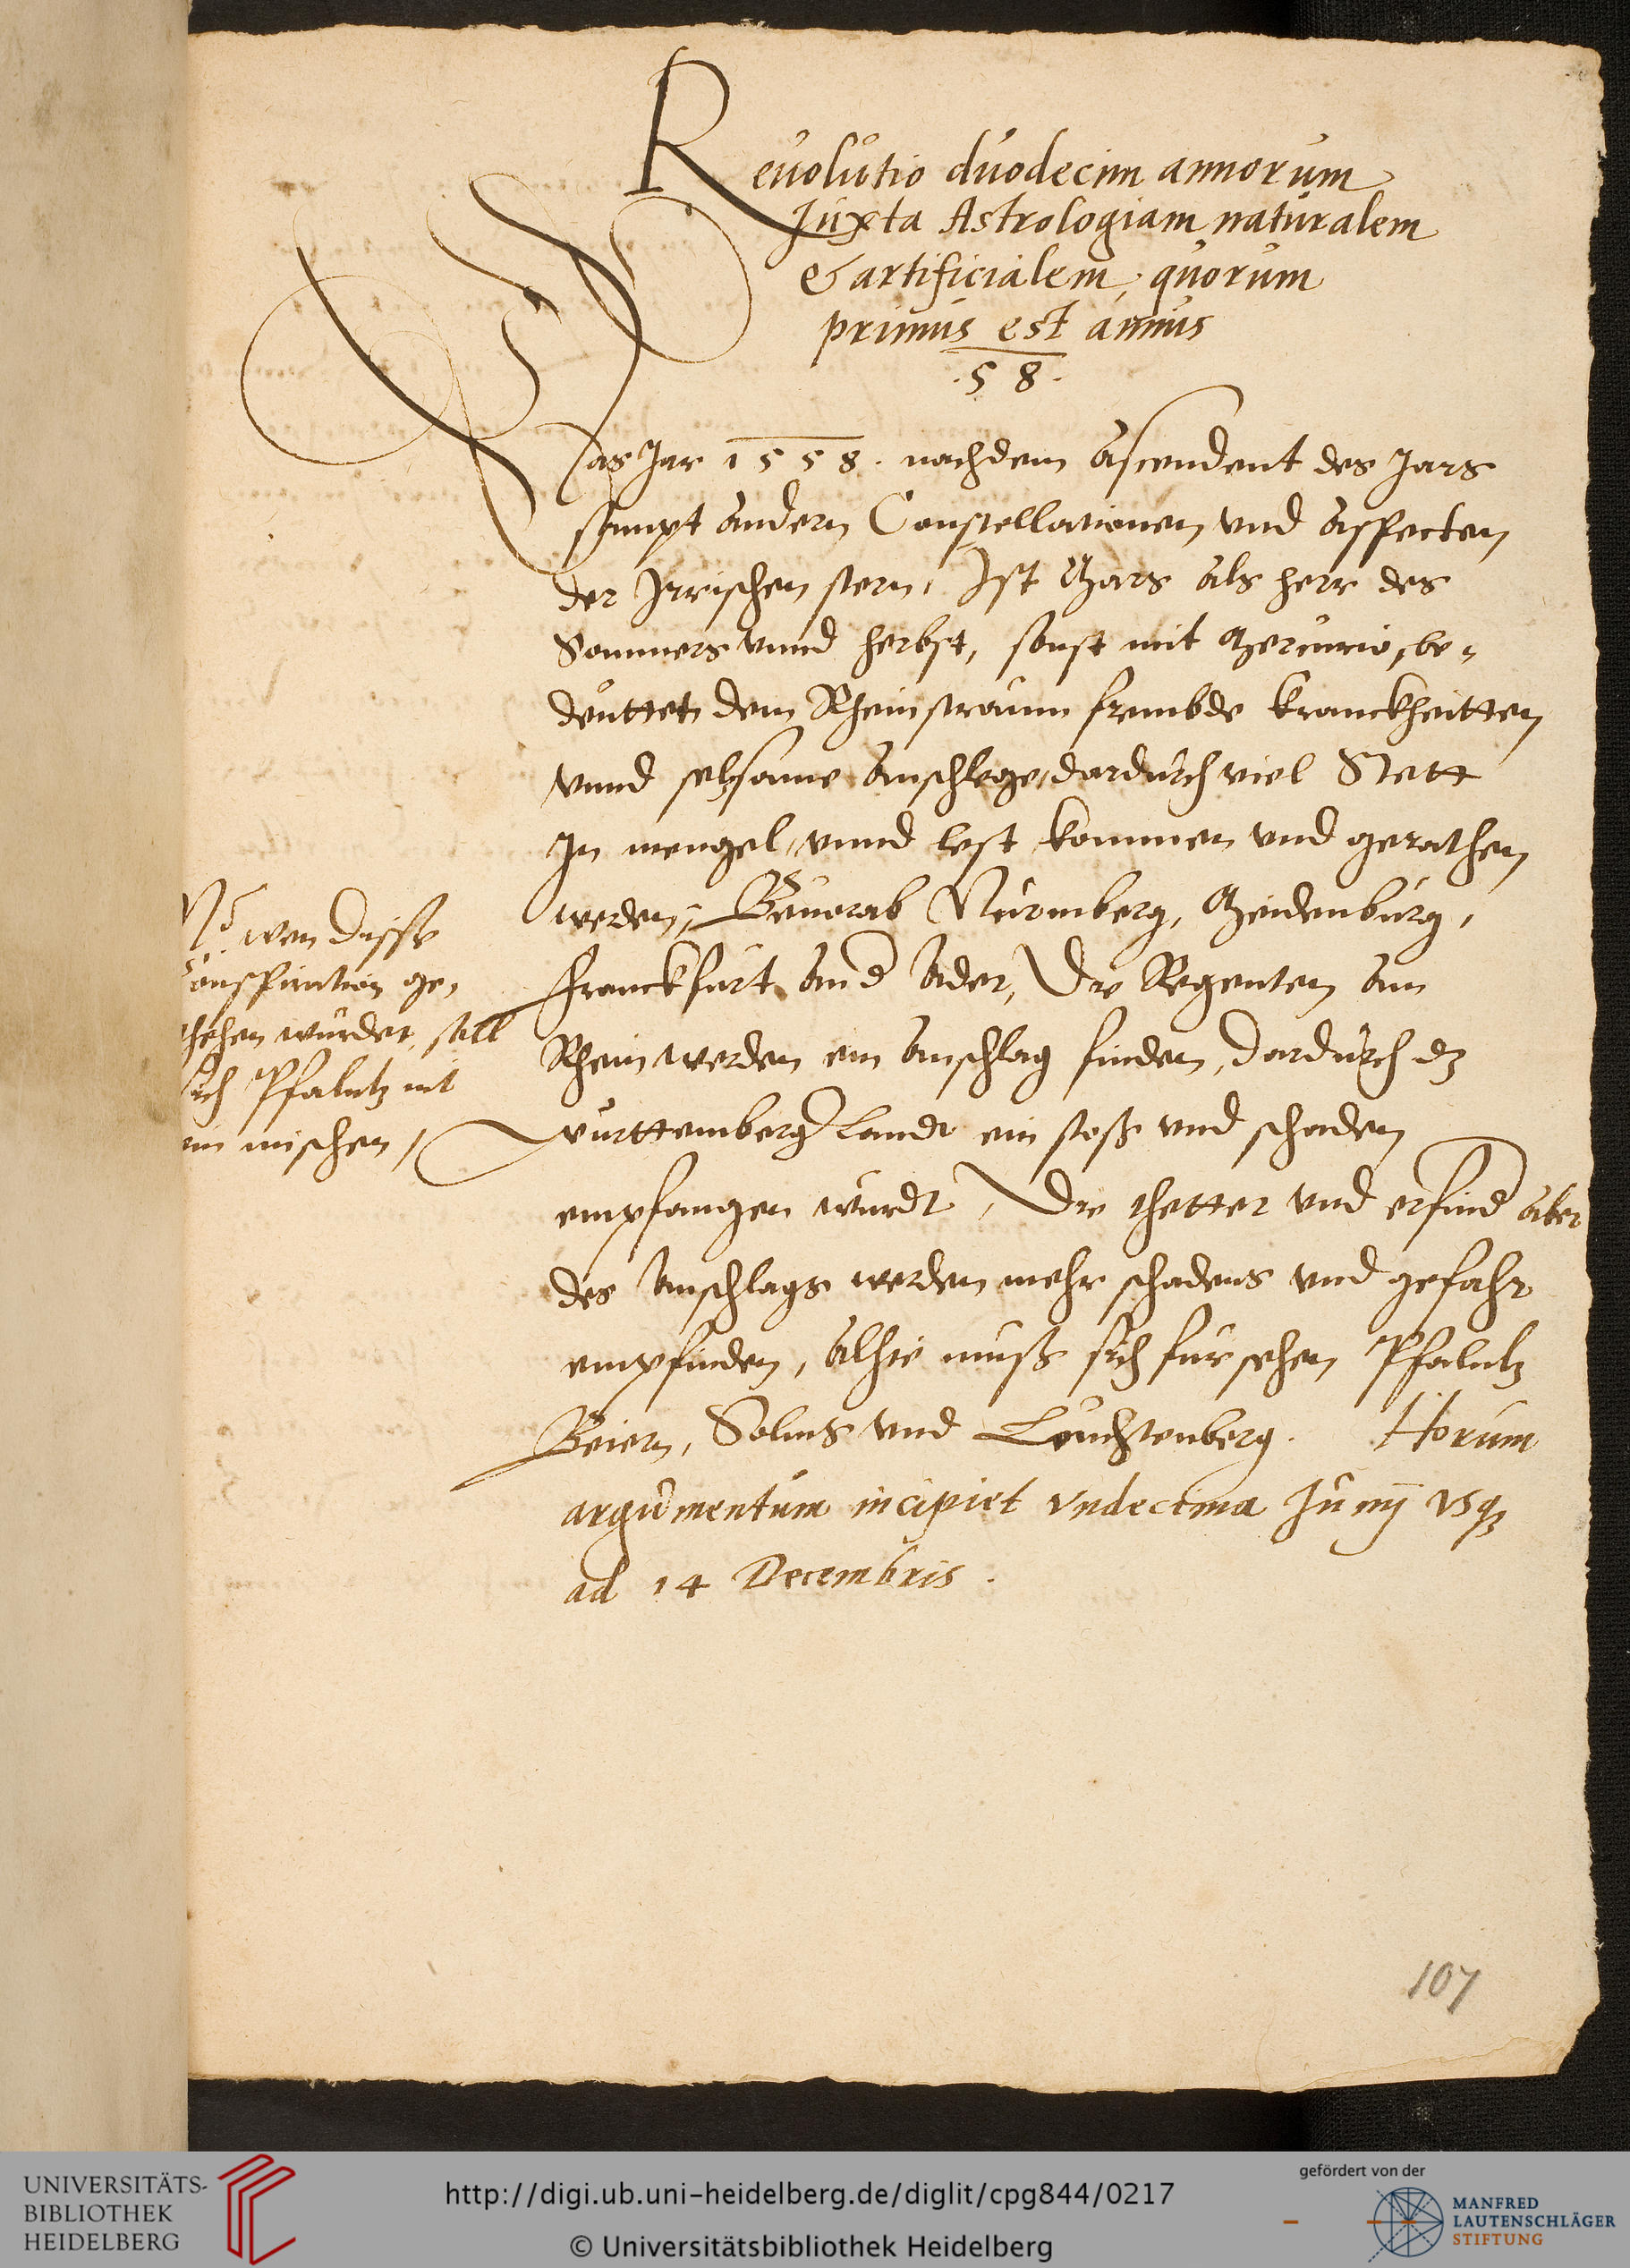 Reuolutio duodecim annorum
Iuxta Astrologiam naturalem
& artificialem, quorum
primus est annus
.58.
Das Jar 1558. nachdem Ascendent des Jars
sampt andern Constellationen vnd Aspecten
der Irrischen stern, Ist Mars als herr des
Sommers vnnd herbst, sonst mit Mercurio, be-
deuttet dem Rheinstraum frembde kranckheitten
vnnd selzame anschlege, dardurch viel Stett
In mengel, vnnd last kommen vnd gerathen
werden, Beuorab Nürmberg, Meidenburg,
Franckfurt an d Ader, Die Regenten am
Rhein werden ein anschlag finden, dardurch dz
wurttemberg landt ein stoß vnd schaden
empfangen wurdt, Die thetter vnd erfind aber
des anschlags werden mehr schadens vnd gefahr
empfinden, Alhie muß sich fursehen Pfaltz
Beiern, Solms vnd Leuchtenberg. Horum
argumentum incipiet vndecima Junij vsq
ad 14 Decembris.
wen disse
conspiration ge,
schehen würdet, soll
sich Pfaltz nit
ein mischen,
107
UNIVERSITÄTS-
BIBLIOTHEK
HEIDELBERG
http://digi.ub.uni-heidelberg.de/diglit/cpg844/0217
© Universitätsbibliothek Heidelberg
gefördert von der
MANFRED
LAUTENSCHLÄGER
STIFTUNG